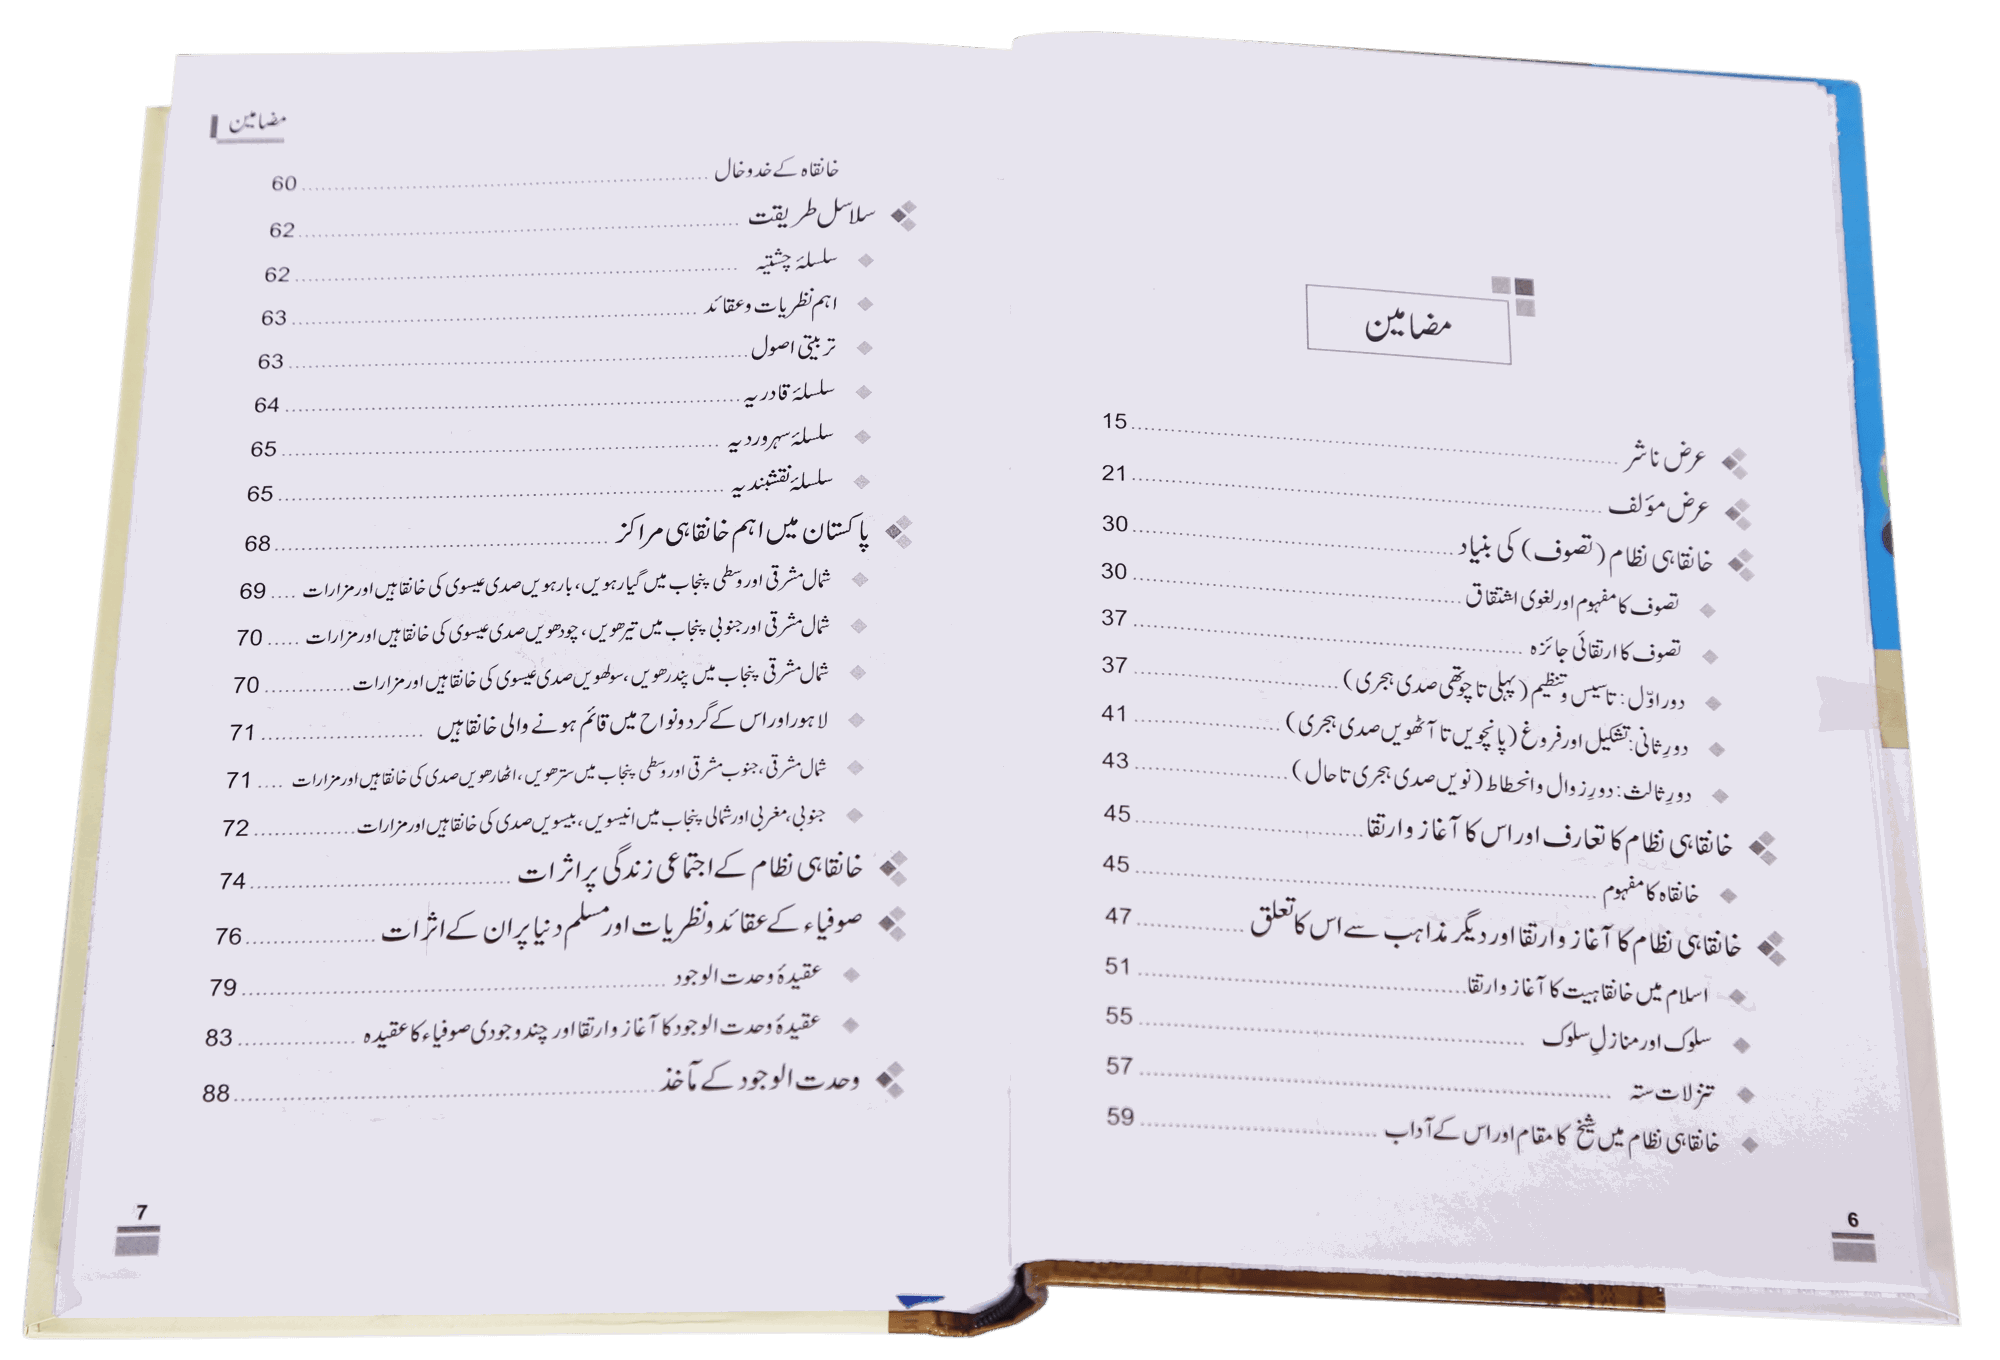 مضامین
عرض ناشر 15
عرض مؤلف 21
خانقاہی نظام (تصوف) کی بنیاد 30
تصوف کا مفہوم اور لغوی اشتقاق 30
تصوف کا ارتقائی جائزہ 37
دور اوّل: تاسیس و تنظیم (پہلی تا چوتھی صدی ہجری) 37
دورِ ثانی: تشکیل اور فروغ (پانچویں تا آٹھویں صدی ہجری) 41
دورِ ثالث: دورِ زوال و انحطاط (نویں صدی ہجری تا حال) 43
خانقاہی نظام کا تعارف اور اس کا آغاز و ارتقا 45
خانقاہ کا مفہوم 45
خانقاہی نظام کا آغاز و ارتقا اور دیگر مذاہب سے اس کا تعلق 47
اسلام میں خانقاہیت کا آغاز و ارتقا 51
سلوک اور منازلِ سلوک 55
تنزلات ستہ 57
خانقاہی نظام میں شیخ کا مقام اور اس کے آداب 59
6
مضامین
خانقاہ کے خدوخال 60
سلاسل طریقت 62
سلسلۂ چشتیہ 62
اہم نظریات و عقائد 63
تربیتی اصول 63
سلسلۂ قادریہ 64
سلسلۂ سہروردیہ 65
سلسلۂ نقشبندیہ 65
پاکستان میں اہم خانقاہی مراکز 68
شمال مشرقی اور وسطی پنجاب میں گیارہویں، بارہویں صدی عیسوی کی خانقاہیں اور مزارات 69
شمال مشرقی اور جنوبی پنجاب میں تیرھویں، چودھویں صدی عیسوی کی خانقاہیں اور مزارات 70
شمال مشرقی پنجاب میں پندرھویں، سولھویں صدی عیسوی کی خانقاہیں اور مزارات 70
لاہور اور اس کے گرد و نواح میں قائم ہونے والی خانقاہیں 71
شمال مشرقی، جنوب مشرقی اور وسطی پنجاب میں سترھویں، اٹھارھویں صدی کی خانقاہیں اور مزارات 71
جنوبی، مغربی اور شمالی پنجاب میں انیسویں، بیسویں صدی کی خانقاہیں اور مزارات 72
خانقاہی نظام کے اجتماعی زندگی پر اثرات 74
صوفیاء کے عقائد و نظریات اور مسلم دنیا پر ان کے اثرات 76
عقیدۂ وحدت الوجود 79
عقیدۂ وحدت الوجود کا آغاز و ارتقا اور چند وجودی صوفیاء کا عقیدہ 83
وحدت الوجود کے مآخذ 88
7